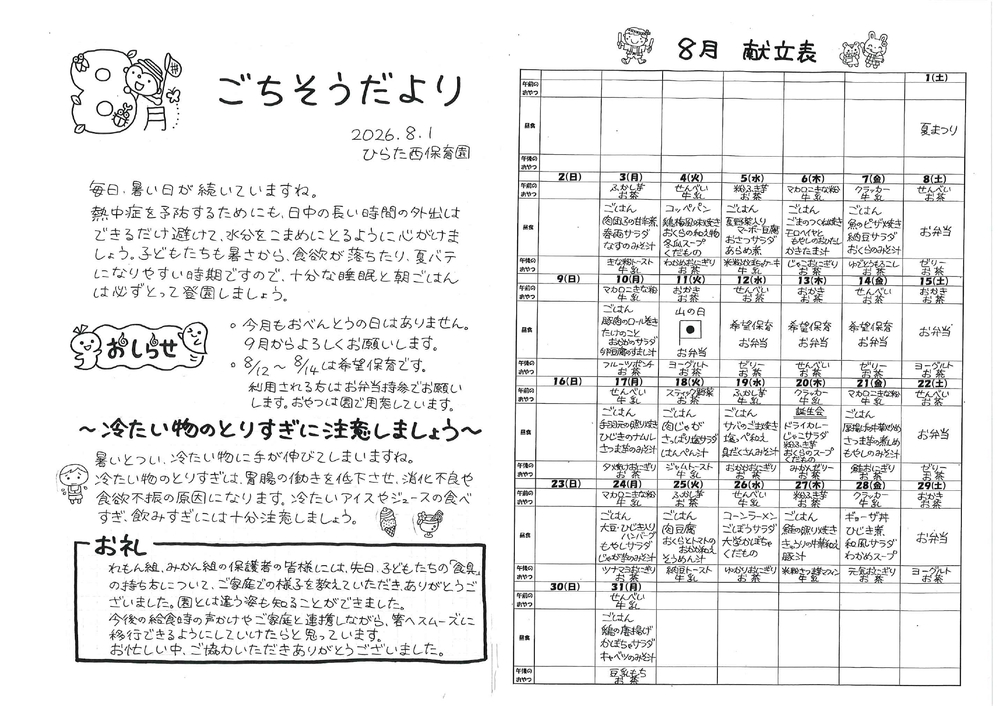 ごちそうだより
2026.8.1
ひらた西保育園
毎日、暑い日が続いていますね。
熱中症を予防するためにも、日中の長い時間の外出は
できるだけ避けて、水分をこまめにとるように心がけま
しょう。子どもたちも暑さから、食欲が落ちたり、夏バテ
になりやすい時期ですので、十分な睡眠と朝ごはん
は必ずとって登園しましょう。
おしらせ
○ 今月もおべんとうの日はありません。
9月からよろしくお願いします。
○ 8/12 〜 8/14は希望保育です。
利用される方はお弁当持参でお願い
します。おやつは園で用意しています。
〜冷たい物のとりすぎに注意しましょう〜
暑いとつい、冷たい物に手が伸びてしまいますね。
冷たい物のとりすぎは、胃腸の働きを低下させ、消化不良や
食欲不振の原因になります。冷たいアイスやジュースの食べ
すぎ、飲みすぎには十分注意しましょう。
お礼
れもん組、みかん組の保護者の皆様には、先日、子どもたちの「食具
の持ち方」について、ご家庭での様子を教えていただき、ありがとうご
ざいました。園とは違う姿も知ることができました。
今後の給食時の声かけやご家庭と連携しながら、箸へスムーズに
移行できるようにしていけたらと思っています。
お忙しい中、ご協力いただきありがとうございました。
8月 献立表
1(土)
午前の
おやつ
昼食
夏まつり
午後の
おやつ
2(日) 3(月) 4(火) 5(水) 6(木) 7(金) 8(土)
午前の ふかし芋 せんべい 粉ふき芋 マカロニきな粉 クラッカー せんべい
おやつ お茶 お茶 お茶 牛乳 牛乳 お茶
ごはん コッペパン ごはん ごはん ごはん
春雨サラダ おくらの和え物 マーボー豆腐 納豆サラダ お弁当
昼食 なすのみそ汁 冬瓜スープ おさつサラダ おくらのみそ汁
くだもの あらめ煮 かきたま汁
午後の きな粉トースト わかめおにぎり じゃこおにぎり ゆでとうもろこし ゼリー
おやつ 牛乳 お茶 牛乳 お茶 お茶 お茶
9(日) 10(月) 11(火) 12(水) 13(木) 14(金) 15(土)
午前の マカロニきな粉 おかき せんべい おかき せんべい おかき
おやつ 牛乳 お茶 お茶 お茶 お茶 お茶
ごはん 山の日
豚肉のロール巻き
昼食 たけのこと 希望保育 希望保育 希望保育 お弁当
おかかのサラダ お弁当 お弁当 お弁当
お弁当
午後の フルーツポンチ ヨーグルト ゼリー ゼリー せんべい ヨーグルト
おやつ お茶 お茶 お茶 お茶 お茶 お茶
16(日) 17(月) 18(火) 19(水) 20(木) 21(金) 22(土)
午前の せんべい スティック野菜 ふかし芋 クラッカー マカロニきな粉 せんべい
おやつ 牛乳 お茶 お茶 牛乳 牛乳 お茶
誕生会
ごはん ごはん ごはん ドライカレー ごはん
手羽元の照り焼き 肉じゃが サバのごま焼き じゃこサラダ お弁当
昼食 ひじきのナムル さっぱり塩サラダ 塩っぺ和え 粉ふき芋 さつま芋の煮しめ
さつま芋のみそ汁 はんぺん汁 具だくさんみそ汁 おくらのスープ もやしのみそ汁
くだもの
午後の 夕焼けおにぎり ジャムトースト おかかおにぎり みかんゼリー 鮭おにぎり ゼリー
おやつ お茶 牛乳 お茶 お茶 お茶 お茶
23(日) 24(月) 25(火) 26(水) 27(木) 28(金) 29(土)
午前の マカロニきな粉 ふかし芋 せんべい 粉ふき芋 クラッカー おかき
おやつ 牛乳 お茶 牛乳 お茶 牛乳 お茶
ごはん ごはん コーンラーメン ごはん ギョーザ丼
大豆・ひじき入り 肉豆腐 ごぼうサラダ 鮭の照り焼き ひじき煮 お弁当
昼食 ハンバーグ おくらとトマトの 大学かぼちゃ 和風サラダ
もやしサラダ おかか和え くだもの 豚汁 わかめスープ
じゃが芋のみそ汁 そうめん汁
午後の ツナマヨおにぎり 納豆トースト ゆかりおにぎり 元気おにぎり ヨーグルト
おやつ お茶 牛乳 お茶 お茶 お茶 お茶
30(日) 31(月)
午前の せんべい
おやつ 牛乳
ごはん
鶏の唐揚げ
昼食 かぼちゃサラダ
キャベツのみそ汁
午後の 豆乳もち
おやつ お茶